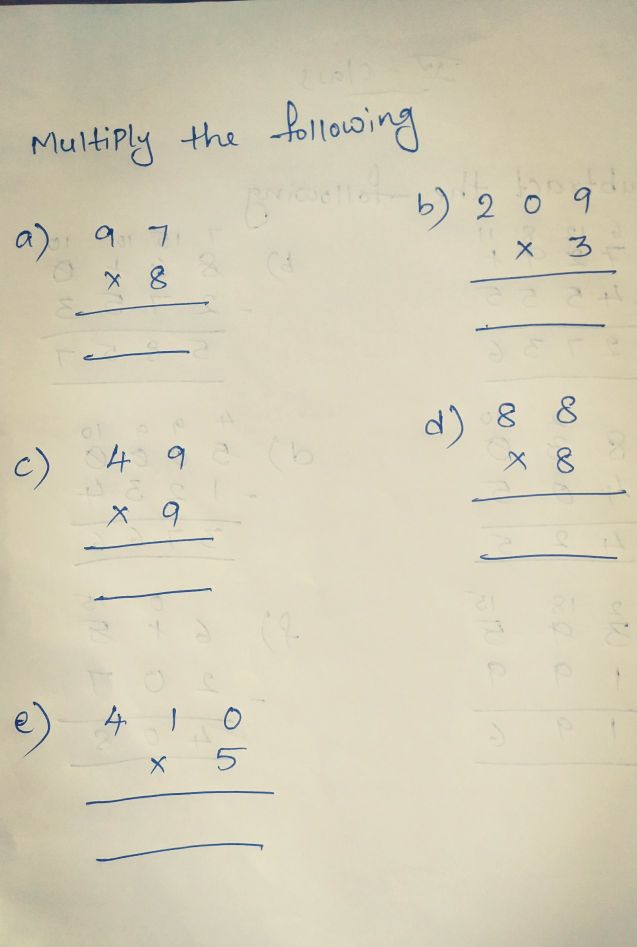 Multiply the following
a) 9 7
x 8
b) 2 0 9
x 3
c) 4 9
x 9
d) 8 8
x 8
e) 4 1 0
x 5